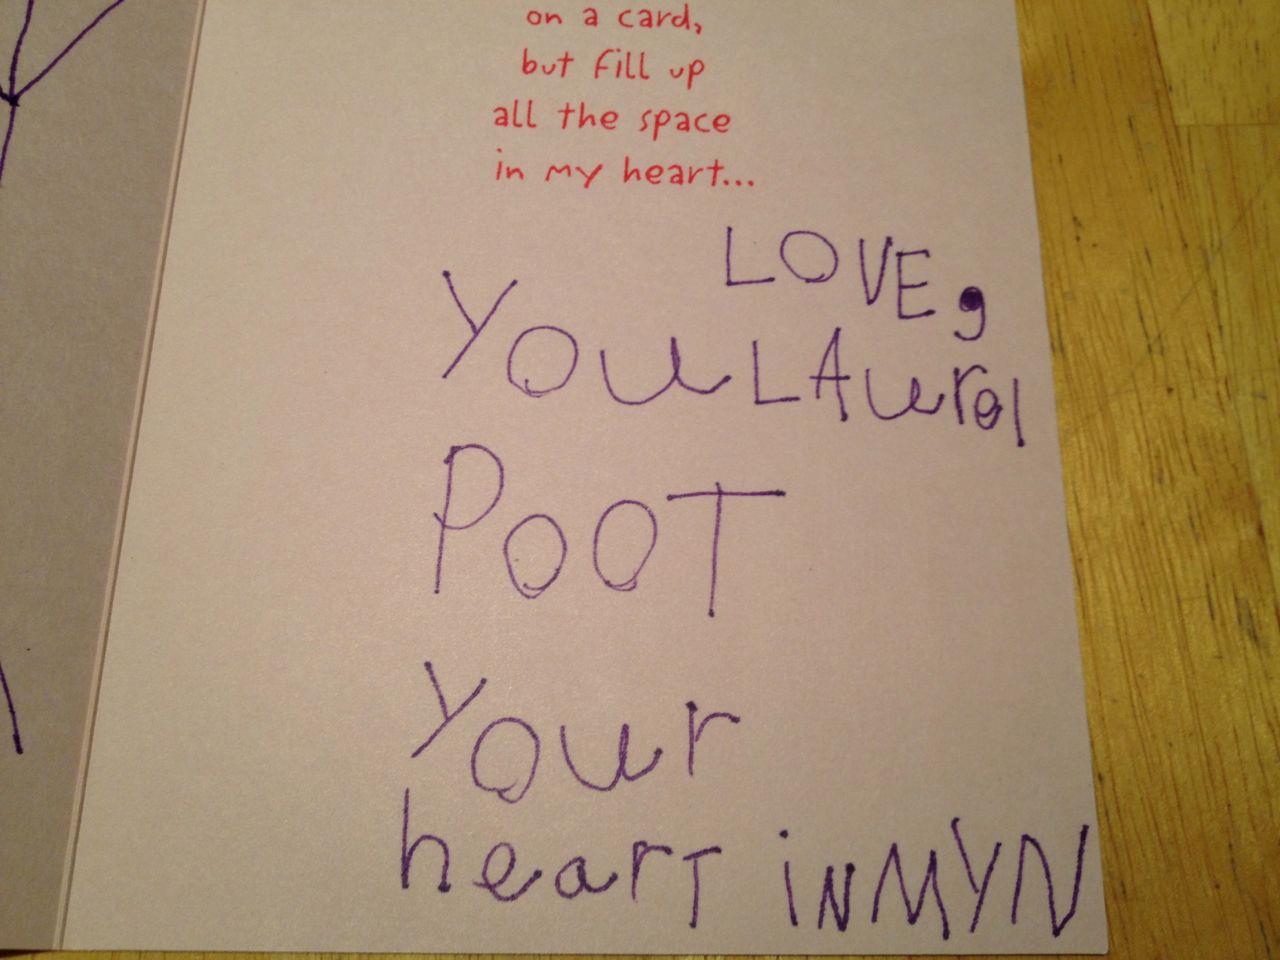 on a card,
but fill up
all the space
in my heart...
LOVE,
LAurel
You
POOT
Your
hearT iNMYN